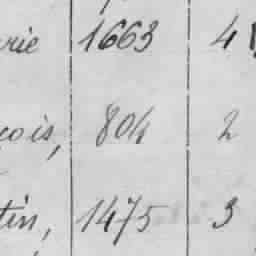 rie 1663 4
çois, 804 2
tin, 1475 3